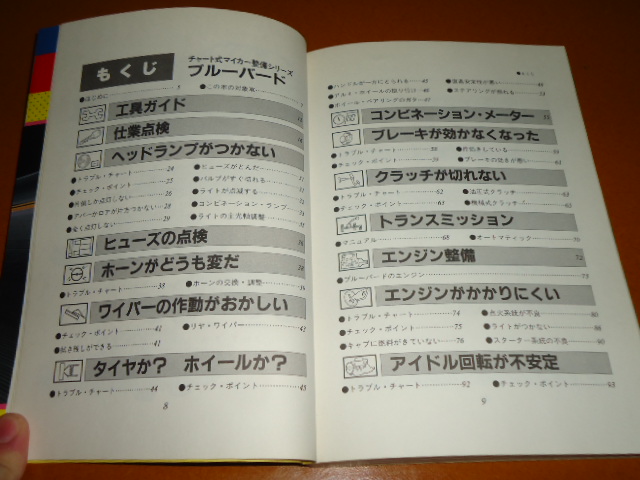 もくじ
チャート式マイカー整備シリーズ
ブルーバード
●はじめに 5 ●この本の対象車 7
工具ガイド
仕業点検
ヘッドランプがつかない
●トラブル・チャート 24 ●ヒューズがとんだ
●チェック・ポイント 25 ●バルブがすぐ切れる
●片側しか点灯しない 26 ●ライトが点滅する
●アッパーかロアが片方つかない 28 ●コンビネーション・ランプ
●全く点灯しない 29 ●ライトの主光軸調整
ヒューズの点検
ホーンがどうも変だ 38
●トラブル・チャート 38 ●ホーンの交換・調整 39
ワイパーの作動がおかしい
●チェック・ポイント 41 ●リヤ・ワイパー 41
●拭き残しができる 41
タイヤか? ホイールか?
●トラブル・チャート 44 ●チェック・ポイント 45
8
●もくじ
●ハンドルが一方にとられる ●直進安定性が悪い
●アルミ・ホイールの取り付け ●ステアリングが振れる
●ホイール・ベアリングのガタ
コンビネーション・メーター
ブレーキが効かなくなった
●トラブル・チャート 58 ●片効きしている
●チェック・ポイント 59 ●ブレーキの効きが悪い
クラッチが切れない
●トラブル・チャート 62 ●油圧式クラッチ 63
●チェック・ポイント 63 ●機械式クラッチ
トランスミッション
●マニュアル 68 ●オートマティック
エンジン整備 72
●ブルーバードのエンジン 73
エンジンがかかりにくい
●トラブル・チャート 74 ●点火系統が不良 80
●チェック・ポイント 75 ●ライトがつかない 86
●キャブに燃料がきていない 76 ●スターター系統の不良 90
アイドル回転が不安定
●トラブル・チャート 92 ●チェック・ポイント 93
9